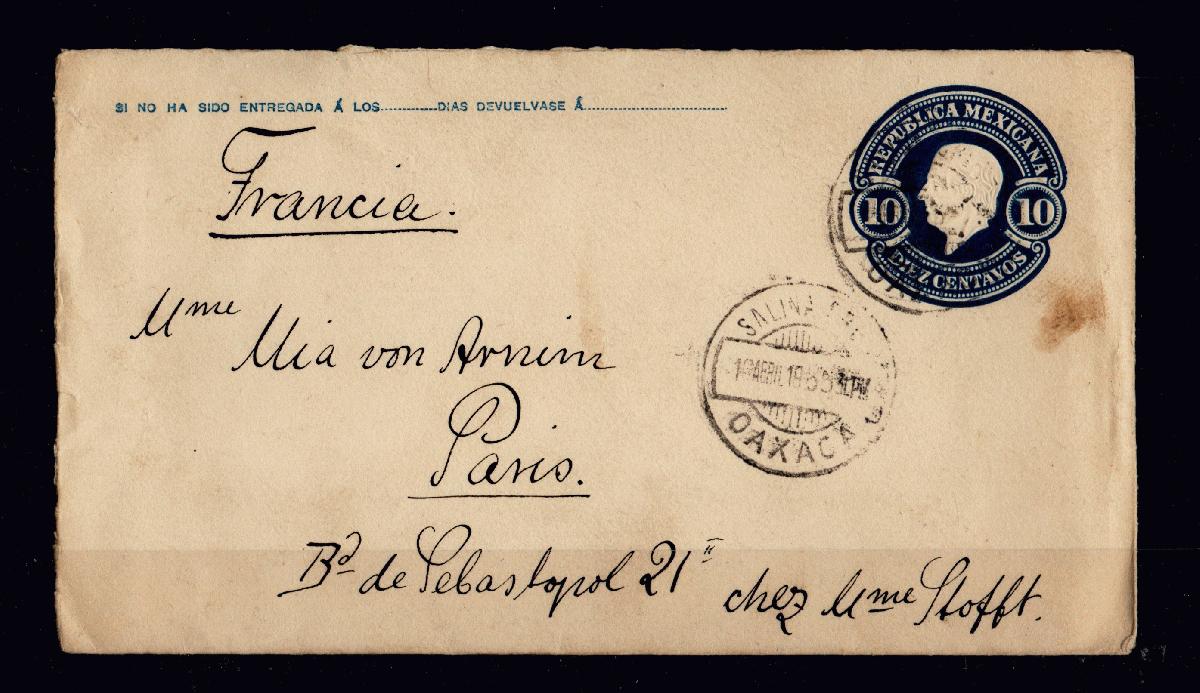 SI NO HA SIDO ENTREGADA Á LOS............DIAS DEVUELVASE Á..............................
REPUBLICA MEXICANA
10 10
DIEZ CENTAVOS
Francia.
SALINA
ABRIL
OAXACA
Mme
Mia von Arnim
Paris.
Bd de Sebastopol 21II
chez Mme Stofft.